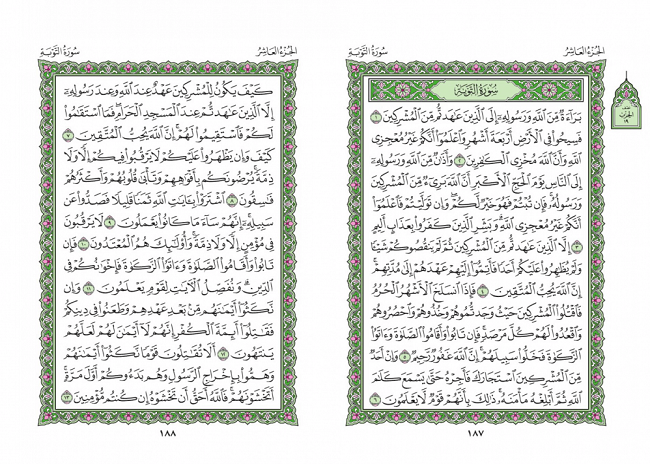 الجزء العاشر
سورة التوبة
نصف
الحزب
١٩
سُورَةُ التَّوْبَةِ
بَرَآءَةٌ مِّنَ ٱللَّهِ وَرَسُولِهِۦٓ إِلَى ٱلَّذِينَ عَٰهَدتُّم مِّنَ ٱلْمُشْرِكِينَ ١
فَسِيحُوا۟ فِى ٱلْأَرْضِ أَرْبَعَةَ أَشْهُرٍ وَٱعْلَمُوٓا۟ أَنَّكُمْ غَيْرُ مُعْجِزِى
ٱللَّهِ وَأَنَّ ٱللَّهَ مُخْزِى ٱلْكَٰفِرِينَ ٢ وَأَذَٰنٌ مِّنَ ٱللَّهِ وَرَسُولِهِۦٓ
إِلَى ٱلنَّاسِ يَوْمَ ٱلْحَجِّ ٱلْأَكْبَرِ أَنَّ ٱللَّهَ بَرِىٓءٌ مِّنَ ٱلْمُشْرِكِينَ
وَرَسُولُهُۥ فَإِن تُبْتُمْ فَهُوَ خَيْرٌ لَّكُمْ وَإِن تَوَلَّيْتُمْ فَٱعْلَمُوٓا۟
أَنَّكُمْ غَيْرُ مُعْجِزِى ٱللَّهِ وَبَشِّرِ ٱلَّذِينَ كَفَرُوا۟ بِعَذَابٍ أَلِيمٍ
٣ إِلَّا ٱلَّذِينَ عَٰهَدتُّم مِّنَ ٱلْمُشْرِكِينَ ثُمَّ لَمْ يَنقُصُوكُمْ شَيْـًٔا
وَلَمْ يُظَٰهِرُوا۟ عَلَيْكُمْ أَحَدًا فَأَتِمُّوٓا۟ إِلَيْهِمْ عَهْدَهُمْ إِلَىٰ مُدَّتِهِمْ
إِنَّ ٱللَّهَ يُحِبُّ ٱلْمُتَّقِينَ ٤ فَإِذَا ٱنسَلَخَ ٱلْأَشْهُرُ ٱلْحُرُمُ
فَٱقْتُلُوا۟ ٱلْمُشْرِكِينَ حَيْثُ وَجَدتُّمُوهُمْ وَخُذُوهُمْ وَٱحْصُرُوهُمْ
وَٱقْعُدُوا۟ لَهُمْ كُلَّ مَرْصَدٍ فَإِن تَابُوا۟ وَأَقَامُوا۟ ٱلصَّلَوٰةَ وَءَاتَوُا۟
ٱلزَّكَوٰةَ فَخَلُّوا۟ سَبِيلَهُمْ إِنَّ ٱللَّهَ غَفُورٌ رَّحِيمٌ ٥ وَإِنْ أَحَدٌ
مِّنَ ٱلْمُشْرِكِينَ ٱسْتَجَارَكَ فَأَجِرْهُ حَتَّىٰ يَسْمَعَ كَلَٰمَ
ٱللَّهِ ثُمَّ أَبْلِغْهُ مَأْمَنَهُۥ ذَٰلِكَ بِأَنَّهُمْ قَوْمٌ لَّا يَعْلَمُونَ ٦
١٨٧
الجزء العاشر
سورة التوبة
كَيْفَ يَكُونُ لِلْمُشْرِكِينَ عَهْدٌ عِندَ ٱللَّهِ وَعِندَ رَسُولِهِۦٓ
إِلَّا ٱلَّذِينَ عَٰهَدتُّمْ عِندَ ٱلْمَسْجِدِ ٱلْحَرَامِ فَمَا ٱسْتَقَٰمُوا۟
لَكُمْ فَٱسْتَقِيمُوا۟ لَهُمْ إِنَّ ٱللَّهَ يُحِبُّ ٱلْمُتَّقِينَ ٧
كَيْفَ وَإِن يَظْهَرُوا۟ عَلَيْكُمْ لَا يَرْقُبُوا۟ فِيكُمْ إِلًّا وَلَا
ذِمَّةً يُرْضُونَكُم بِأَفْوَٰهِهِمْ وَتَأْبَىٰ قُلُوبُهُمْ وَأَكْثَرُهُمْ
فَٰسِقُونَ ٨ ٱشْتَرَوْا۟ بِـَٔايَٰتِ ٱللَّهِ ثَمَنًا قَلِيلًا فَصَدُّوا۟ عَن
سَبِيلِهِۦٓ إِنَّهُمْ سَآءَ مَا كَانُوا۟ يَعْمَلُونَ ٩ لَا يَرْقُبُونَ
فِى مُؤْمِنٍ إِلًّا وَلَا ذِمَّةً وَأُو۟لَٰٓئِكَ هُمُ ٱلْمُعْتَدُونَ ١٠ فَإِن
تَابُوا۟ وَأَقَامُوا۟ ٱلصَّلَوٰةَ وَءَاتَوُا۟ ٱلزَّكَوٰةَ فَإِخْوَٰنُكُمْ فِى
ٱلدِّينِ وَنُفَصِّلُ ٱلْـَٔايَٰتِ لِقَوْمٍ يَعْلَمُونَ ١١ وَإِن
نَّكَثُوٓا۟ أَيْمَٰنَهُم مِّنۢ بَعْدِ عَهْدِهِمْ وَطَعَنُوا۟ فِى دِينِكُمْ
فَقَٰتِلُوٓا۟ أَئِمَّةَ ٱلْكُفْرِ إِنَّهُمْ لَآ أَيْمَٰنَ لَهُمْ لَعَلَّهُمْ
يَنتَهُونَ ١٢ أَلَا تُقَٰتِلُونَ قَوْمًا نَّكَثُوٓا۟ أَيْمَٰنَهُمْ
وَهَمُّوا۟ بِإِخْرَاجِ ٱلرَّسُولِ وَهُم بَدَءُوكُمْ أَوَّلَ مَرَّةٍ
أَتَخْشَوْنَهُمْ فَٱللَّهُ أَحَقُّ أَن تَخْشَوْهُ إِن كُنتُم مُّؤْمِنِينَ ١٣
١٨٨